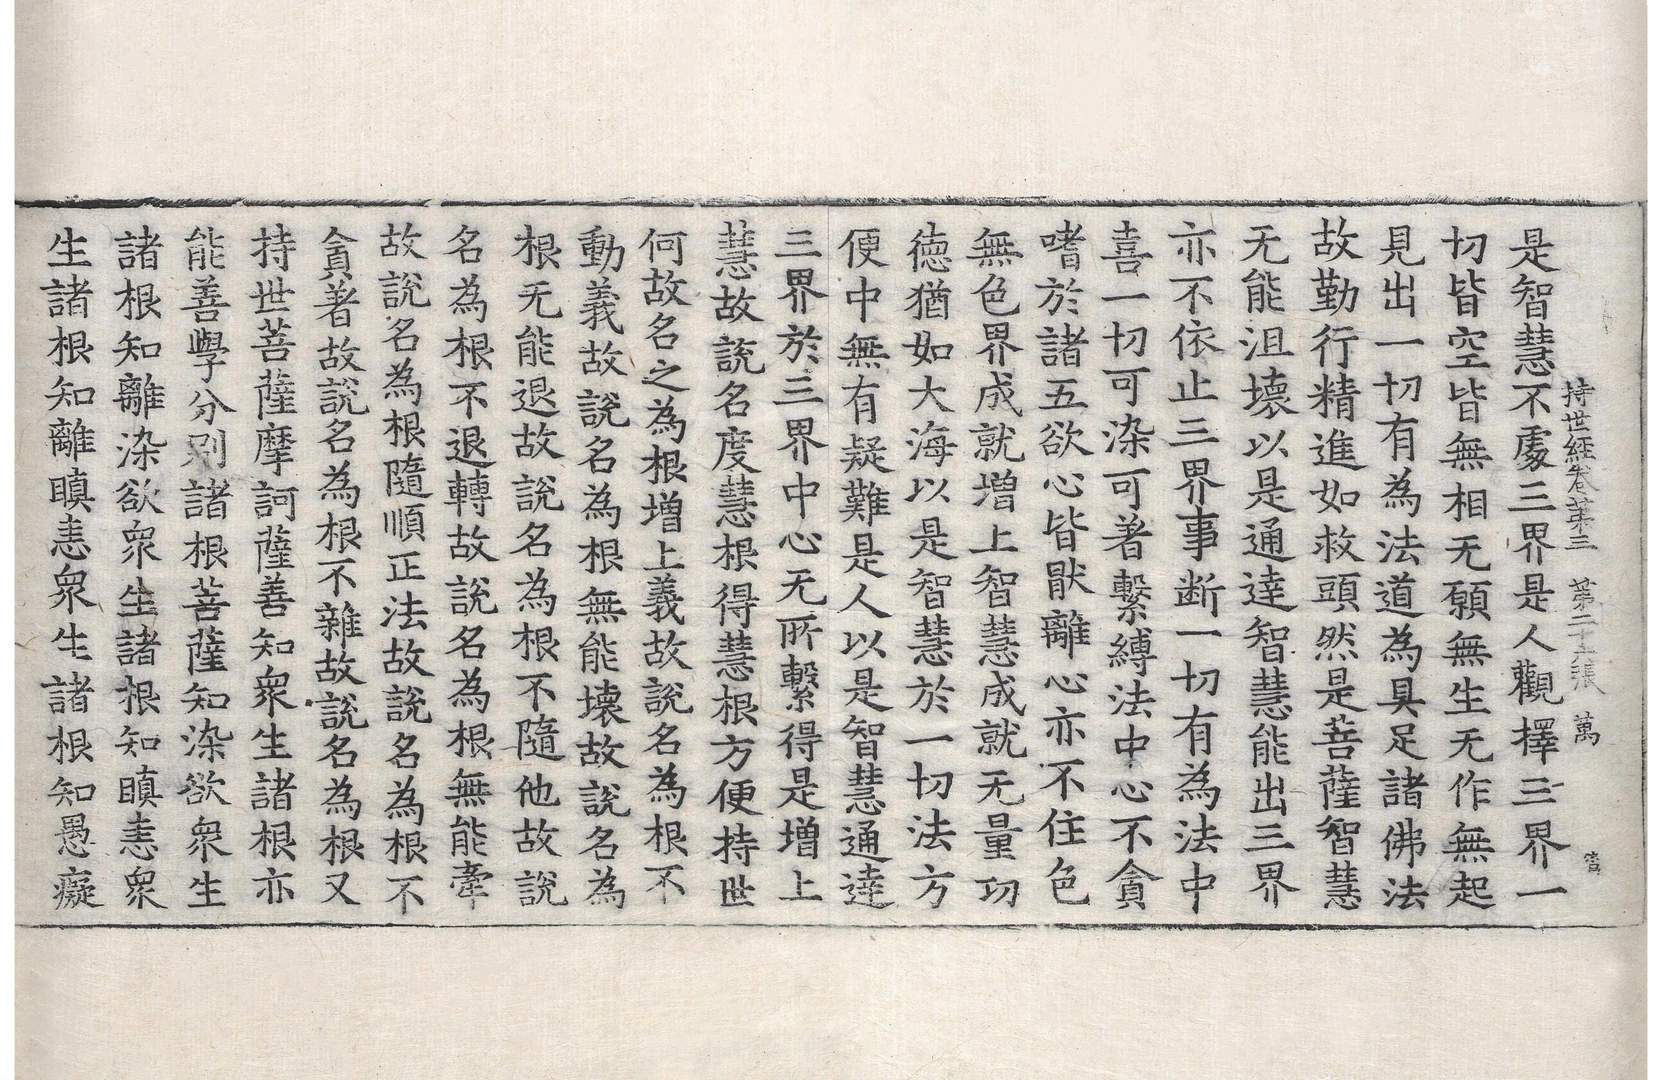 持世經卷第三　第二十五張　萬
是智慧不處三界是人觀擇三界一
切皆空皆無相无願無生无作無起
見出一切有為法道為具足諸佛法
故勤行精進如救頭然是菩薩智慧
无能沮壞以是通達智慧能出三界
亦不依止三界事断一切有為法中
喜一切可染可著繫縛法中心不貪
嗜於諸五欲心皆猒離心亦不住色
無色界成就增上智慧成就无量功
德猶如大海以是智慧於一切法方
便中無有疑難是人以是智慧通達
三界於三界中心无所繫得是增上
慧故說名度慧根得慧根方便持世
何故名之為根增上義故說名為根不
動義故說名為根無能壞故說名為
根无能退故說名為根不隨他故說
名為根不退轉故說名為根無能牽
故說名為根隨順正法故說名為根不
貪著故說名為根不雜故說名為根又
持世菩薩摩訶薩善知衆生諸根亦
能善學分別諸根菩薩知染欲衆生
諸根知離染欲衆生諸根知瞋恚衆
生諸根知離瞋恚衆生諸根知愚癡